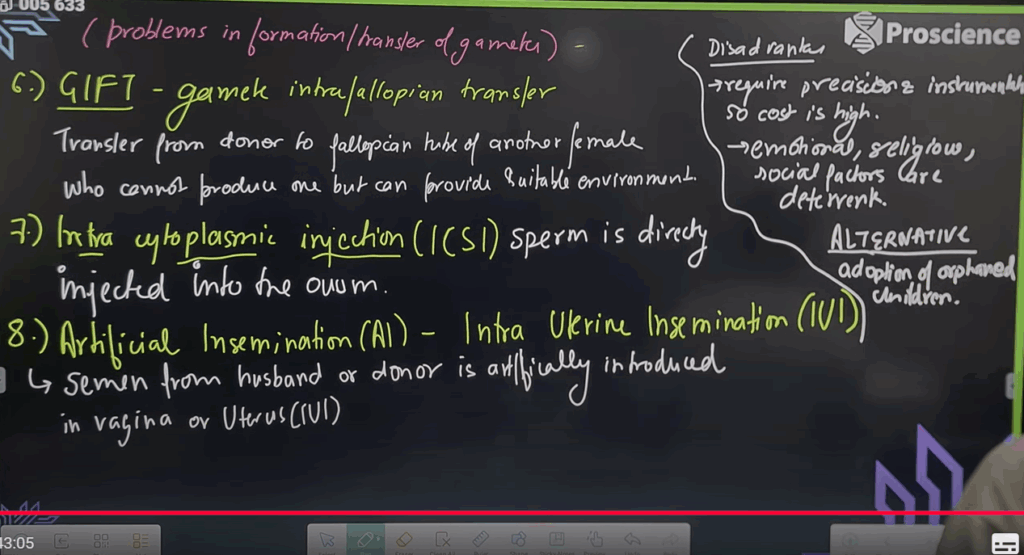 005 633
(problems in formation/transfer of gametes) -
6.) GIFT - gamete intrafallopian transfer
Transfer from donor to fallopian tube of another female
who cannot produce one but can provide suitable environment.
7.) Intra cytoplasmic injection (ICSI) sperm is directly
injected into the ovum.
8.) Artificial Insemination (AI) - Intra Uterine Insemination (IUI)
↳ semen from husband or donor is artificially introduced
in vagina or Uterus (IUI)
Proscience
→ require precision & instruments
so cost is high.
→ emotional, religious,
social factors are
deterrent.
ALTERNATIVE
adoption of orphaned
children.
3:05